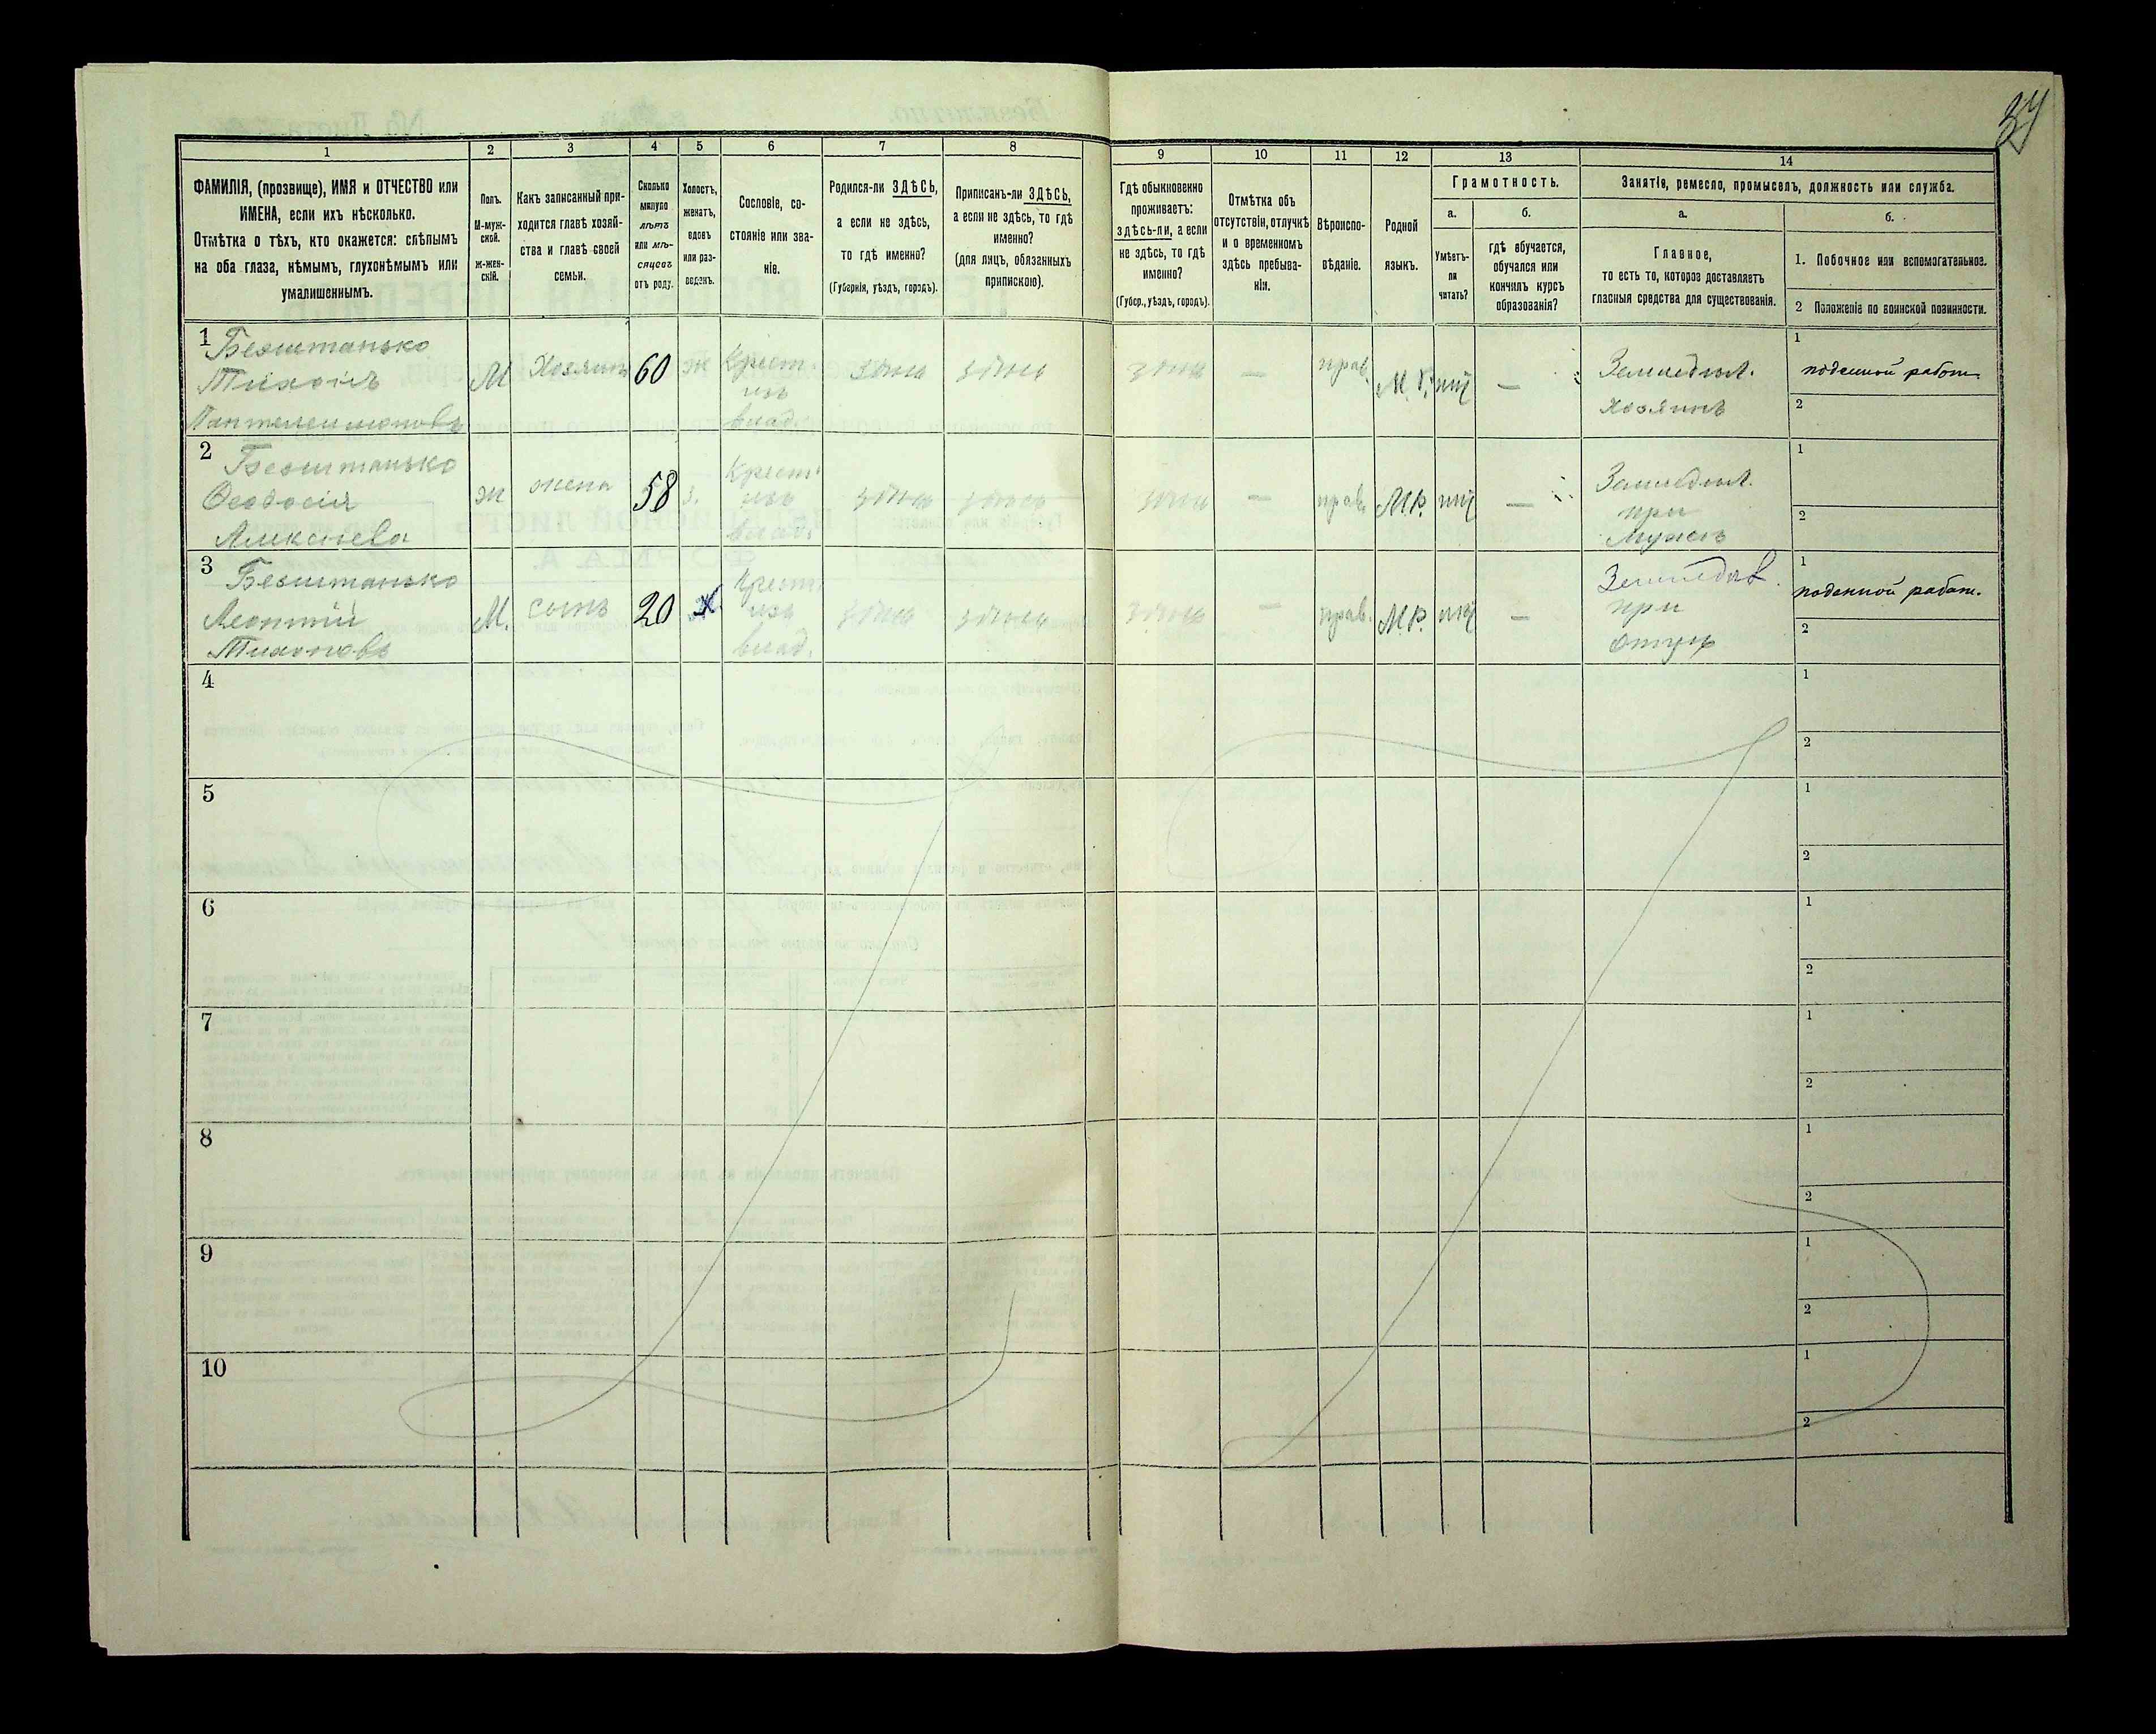 34
1
2
3
4
5
6
7
8
9
10
11
12
13
14
ФАМИЛІЯ, (прозвище), ИМЯ и ОТЧЕСТВО или
ИМЕНА, если ихъ нѣсколько.
Отмѣтка о тѣхъ, кто окажется: слѣпымъ
на оба глаза, нѣмымъ, глухонѣмымъ или
умалишеннымъ.
Полъ.
М-муж-
ской.
ж-жен-
скій.
Какъ записанный при-
ходится главѣ хозяй-
ства и главѣ своей
семьи.
Сколько
минуло
лѣтъ
или мѣ-
сяцевъ
отъ роду.
Холостъ,
женатъ,
вдовъ
или раз-
веденъ.
Сословіе, со-
стояніе или зва-
ніе.
Родился-ли ЗДѢСЬ,
а если не здѣсь,
то гдѣ именно?
(Губернія, уѣздъ, городъ).
Приписанъ-ли ЗДѢСЬ,
а если не здѣсь, то гдѣ
именно?
(для лицъ, обязанныхъ
припискою).
Гдѣ обыкновенно
проживаетъ:
здѣсь-ли, а если
не здѣсь, то гдѣ
именно?
(Губер., уѣздъ, городъ).
Отмѣтка объ
отсутствіи, отлучкѣ
и о временномъ
здѣсь пребыва-
ніи.
Вѣроиспо-
вѣданіе.
Родной
языкъ.
Грамотность.
а.
б.
Умѣетъ-
ли
читать?
гдѣ обучается,
обучался или
кончилъ курсъ
образованія?
Занятіе, ремесло, промыселъ, должность или служба.
а.
б.
Главное,
то есть то, которое доставляетъ
главныя средства для существованія.
1. Побочное или вспомогательное.
2 Положеніе по воинской повинности.
1
Безштанько
Тихонъ
Пантелеимоновъ
М
Хозяинъ
60
ж
Крест.
изъ
влад.
здѣсь
здѣсь
здѣсь
—
прав.
М. Р.
нѣт
—
Земледѣл.
хозяинъ
1
поденной работ.
2
2
Безштанько
Феодосія
Алексѣева
ж
жена
58
з.
Крест.
изъ
влад.
здѣсь
здѣсь
здѣсь
—
прав.
М.Р.
нѣт
—
Земледѣл.
при
мужѣ
1
2
3
Безштанько
Леонтій
Тихоновъ
М.
сынъ
20
х
Крест.
изъ
влад.
здѣсь
здѣсь
здѣсь
—
прав.
М.Р.
нѣт
—
Земледѣл.
при
отцѣ
1
поденной работ.
2
4
1
2
5
1
2
6
1
2
7
1
2
8
1
2
9
1
2
10
1
2